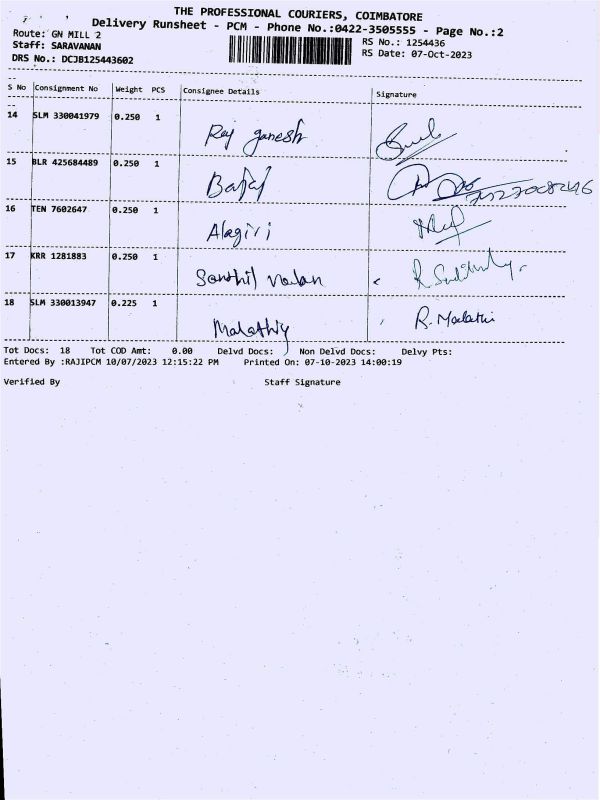 THE PROFESSIONAL COURIERS, COIMBATORE
Delivery Runsheet - PCM - Phone No.:0422-3505555 - Page No.:2
Route: GN MILL 2
Staff: SARAVANAN
DRS No.: DCJB125443602
RS No.: 1254436
RS Date: 07-Oct-2023
S No Consignment No Weight PCS Consignee Details Signature
14 SLM 330041979 0.250 1 Raj ganesh
15 BLR 425684489 0.250 1 Bajaj
16 TEN 7602647 0.250 1 Alagiri
17 KRR 1281883 0.250 1 Senthil
18 SLM 330013947 0.225 1 Malathiy R. Malathi
Tot Docs: 18 Tot COD Amt: 0.00 Delvd Docs: Non Delvd Docs: Delvy Pts:
Entered By :RAJIPCM 10/07/2023 12:15:22 PM Printed On: 07-10-2023 14:00:19
Verified By Staff Signature